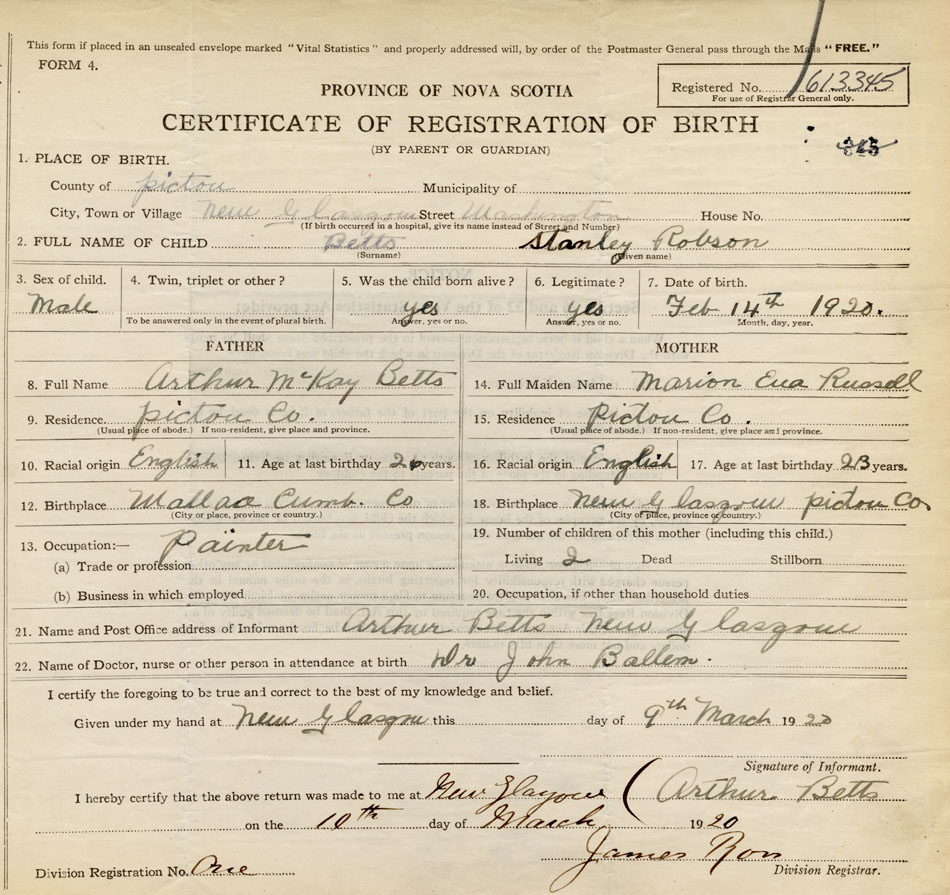 This form if placed in an unsealed envelope marked "Vital Statistics" and properly addressed will, by order of the Postmaster General pass through the Mails "FREE."
FORM 4.
Registered No. 613345
For use of Registrar General only.
PROVINCE OF NOVA SCOTIA
CERTIFICATE OF REGISTRATION OF BIRTH
(BY PARENT OR GUARDIAN)
1. PLACE OF BIRTH.
County of pictou Municipality of
City, Town or Village New Glasgow Street Washington House No.
(If birth occurred in a hospital, give its name instead of Street and Number)
2. FULL NAME OF CHILD Betts Stanley Robson
(Surname) (Given name)
3. Sex of child. 4. Twin, triplet or other? 5. Was the child born alive? 6. Legitimate? 7. Date of birth.
Male yes yes Feb 14th 1920.
To be answered only in the event of plural birth. Answer, yes or no. Answer, yes or no. Month, day, year.
FATHER MOTHER
8. Full Name Arthur McKay Betts 14. Full Maiden Name Marion Eua Russell
9. Residence pictou Co. 15. Residence Pictou Co.
(Usual place of abode.) If non-resident, give place and province. (Usual place of abode.) If non-resident, give place and province.
10. Racial origin English 11. Age at last birthday years. 16. Racial origin English 17. Age at last birthday 23 years.
12. Birthplace Cumb. Co 18. Birthplace New Glasgow pictou Co
(City or place, province or country.) (City or place, province or country.)
13. Occupation:— Painter 19. Number of children of this mother (including this child.)
(a) Trade or profession Living 2 Dead Stillborn
(b) Business in which employed 20. Occupation, if other than household duties
21. Name and Post Office address of Informant Arthur Betts New Glasgow
22. Name of Doctor, nurse or other person in attendance at birth Dr John Ballem.
I certify the foregoing to be true and correct to the best of my knowledge and belief.
Given under my hand at New Glasgow this day of 9th March 1920
Signature of Informant.
I hereby certify that the above return was made to me at New Glasgow ( Arthur Betts
on the 10th day of March 1920
James Ross
Division Registration No. One Division Registrar.